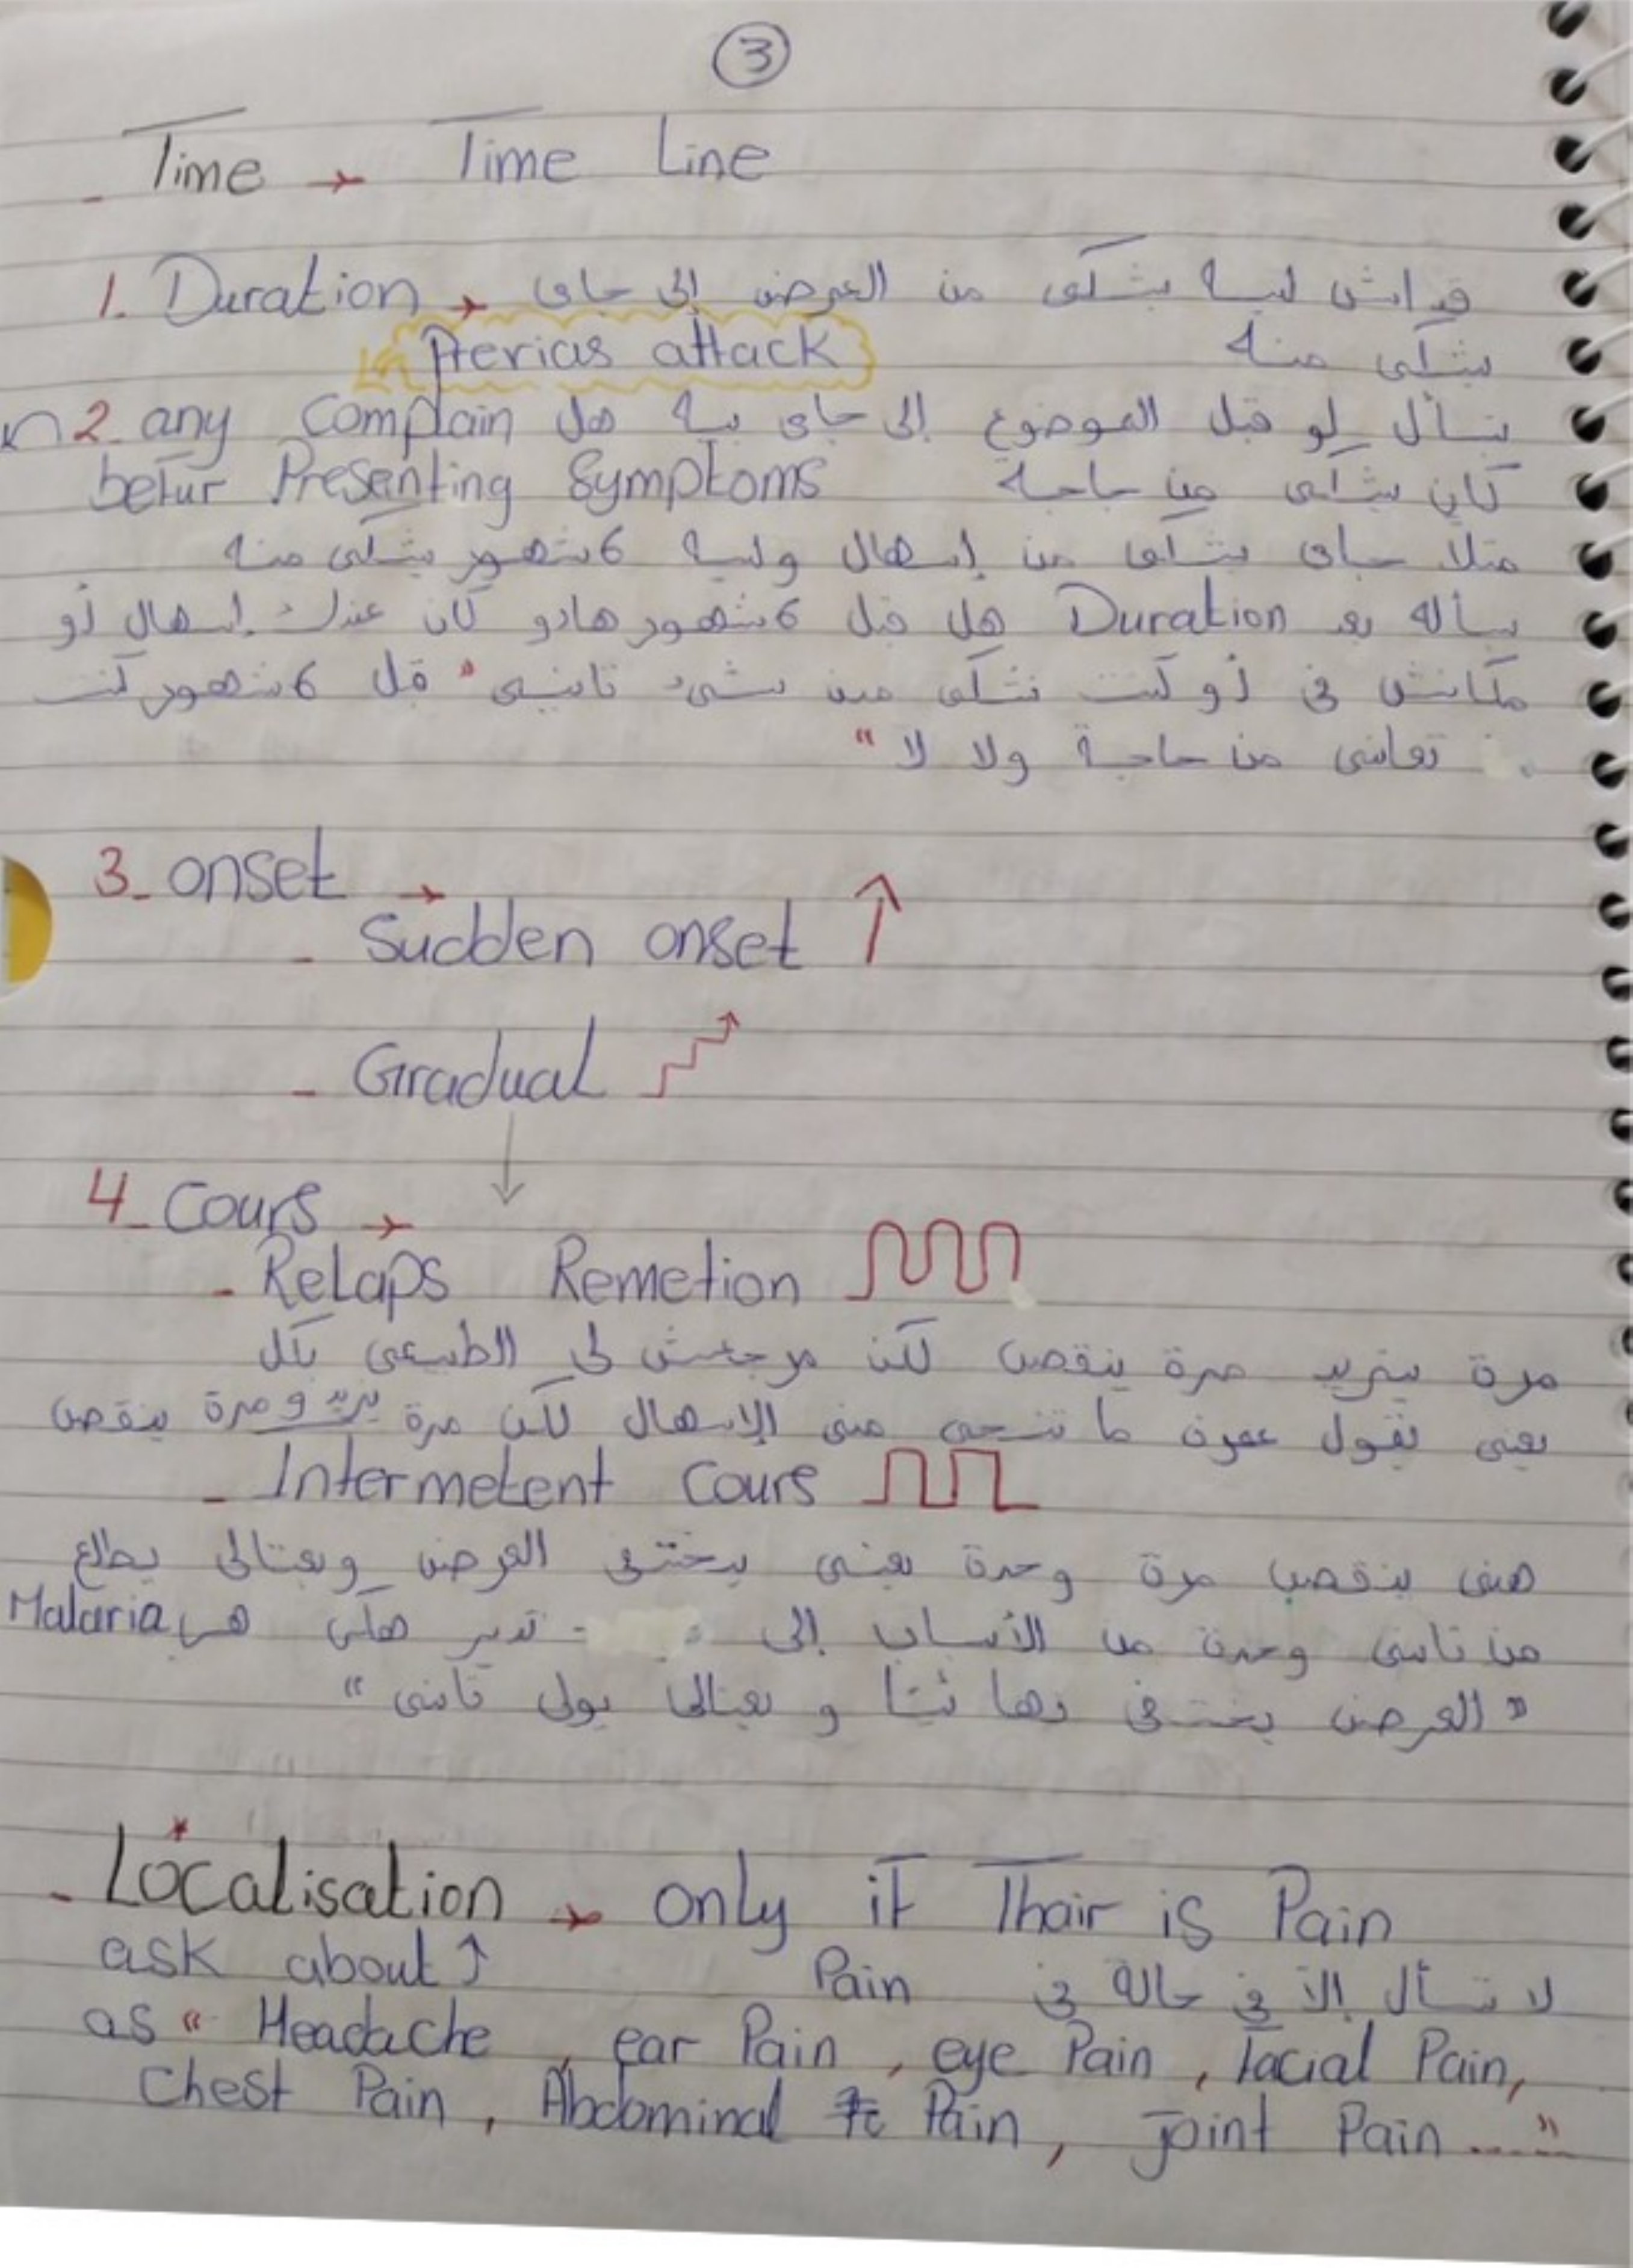 3
Time → Time Line
1. Duration → قداش ليه يشكى من العرض إلى جاى
يشكى منه
Previas attack
2_ any Complain نسأل لو قبل الموضوع إلى جاى بيه هل
befur Presenting Symptoms كان يشكى من حاجة
مثلاً جاى يشكى من إسهال وليه 6 شهور يشكى منه
Duration هل قبل 6 شهور هادو كان عندك إسهال أو
مكانش فى أو كنت تشكى من شىء تانى " قبل 6 شهور كنت
تعانى من حاجة ولا لا "
3_ onset →
- Sudden onset ↑
- Gradual
4_ Cours →
- Relaps Remetion
مرة يزيد مرة ينقص لكن مرجعش لى الطبيعى بكل
يعنى نقول عمره ما تنحى منى الإسهال لكن مرة يزيد ومرة ينقص
- Intermetent Cours
هنى ينقص مرة وحدة يعنى يختفى العرض وبعتالى يطلع
من تانى وحدة من الأسباب إلى تدير هكى هى Malaria
" العرض يختفى نهائيا و بعتالى يولى تانى "
- Localisation → only if Thair is Pain
ask about ↑ لا تسأل إلا فى حالة فى Pain
as " Headache , ear Pain , eye Pain , facial Pain,
Chest Pain , Abdominal Pain , joint Pain ..... "